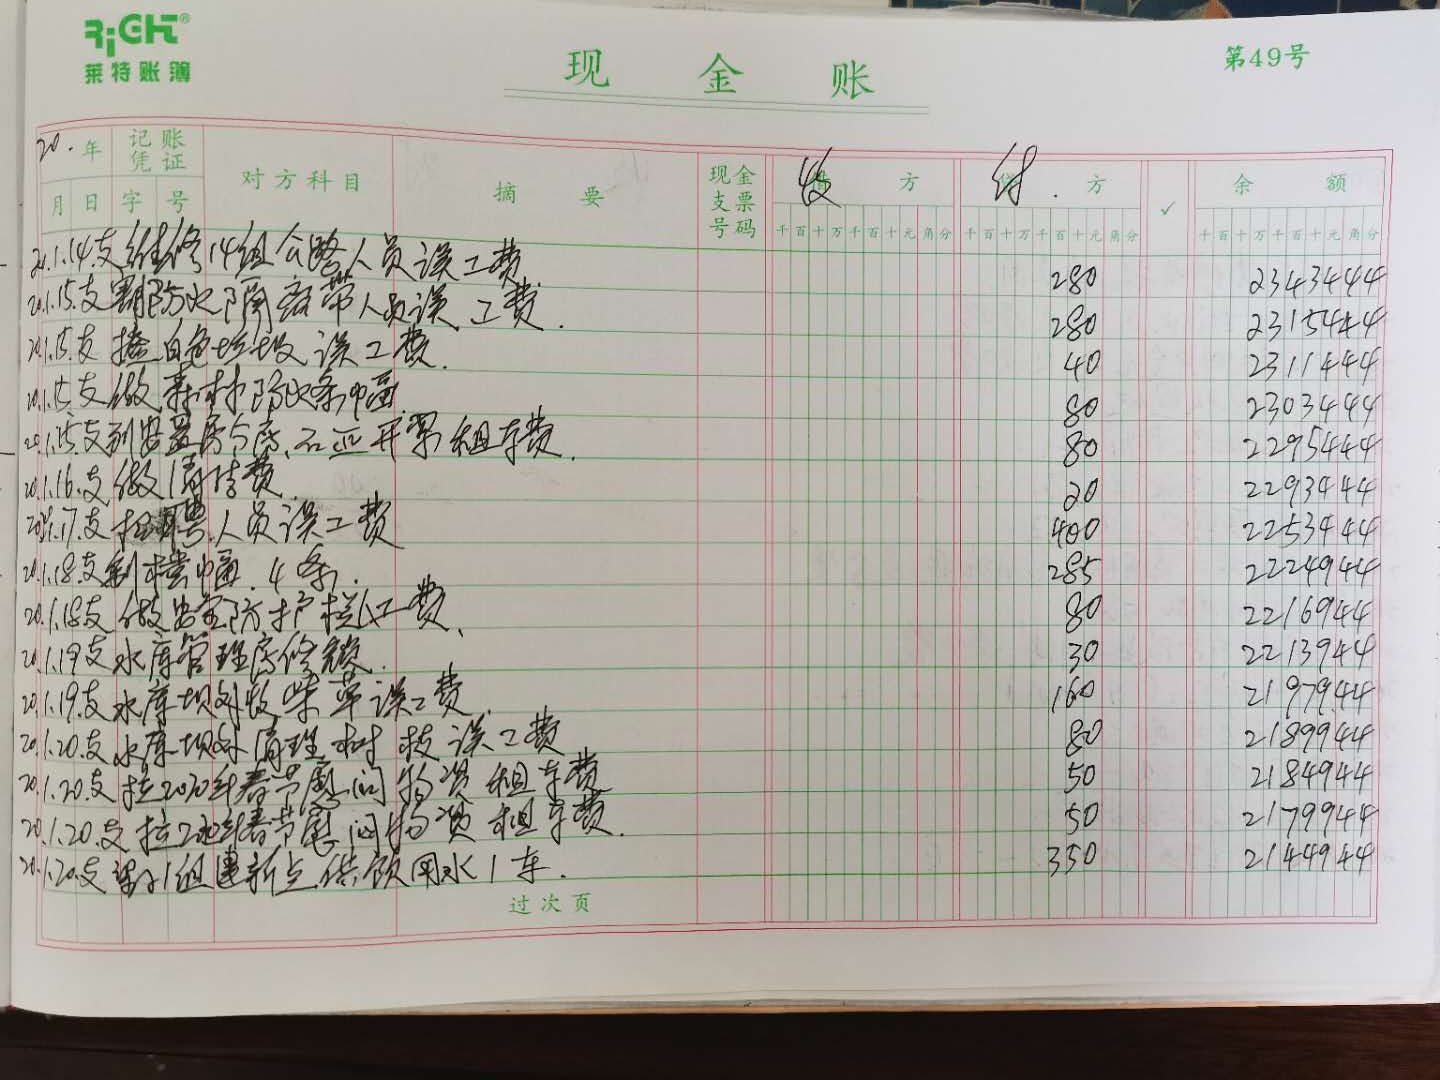 RiCHT®
莱特账簿
现金账
第49号
20.年 记账凭证 对方科目 摘要 现金支票号码 收方 付.方 ✓ 余额
月 日 字 号 千百十万千百十元角分 千百十万千百十元角分 千百十万千百十元角分
20.1.14支维修14组公路人员误工费 280 2343444
20.1.15.支割防火隔离带人员误工费. 280 2315444
20.1.15.支捡白色垃圾误工费. 40 2311444
20.1.15支做森林防火条幅 80 2303444
20.1.15.支到安置房分房. 租车费. 80 2295444
20.1.16.支做清洁费. 20 2293444
20.1.17.支招聘.人员误工费 400 2253444
20.1.18.支制横幅.4条. 285 2224944
20.1.18支做安全防护栏人工费、 80 2216944
20.1.19支水库管理房修锁. 30 2213944
20.1.19.支水库坝外收柴草误工费. 160 2197944
20.1.20.支水库坝外清理树枝误工费 80 2189944
20.1.20.支拉2020年春节慰问物资租车费 50 2184944
20.1.20.支拉2020年春节慰问物资租车费. 50 2179944
20.1.20.支 1组 新点供饮用水1车. 350 2144944
过次页